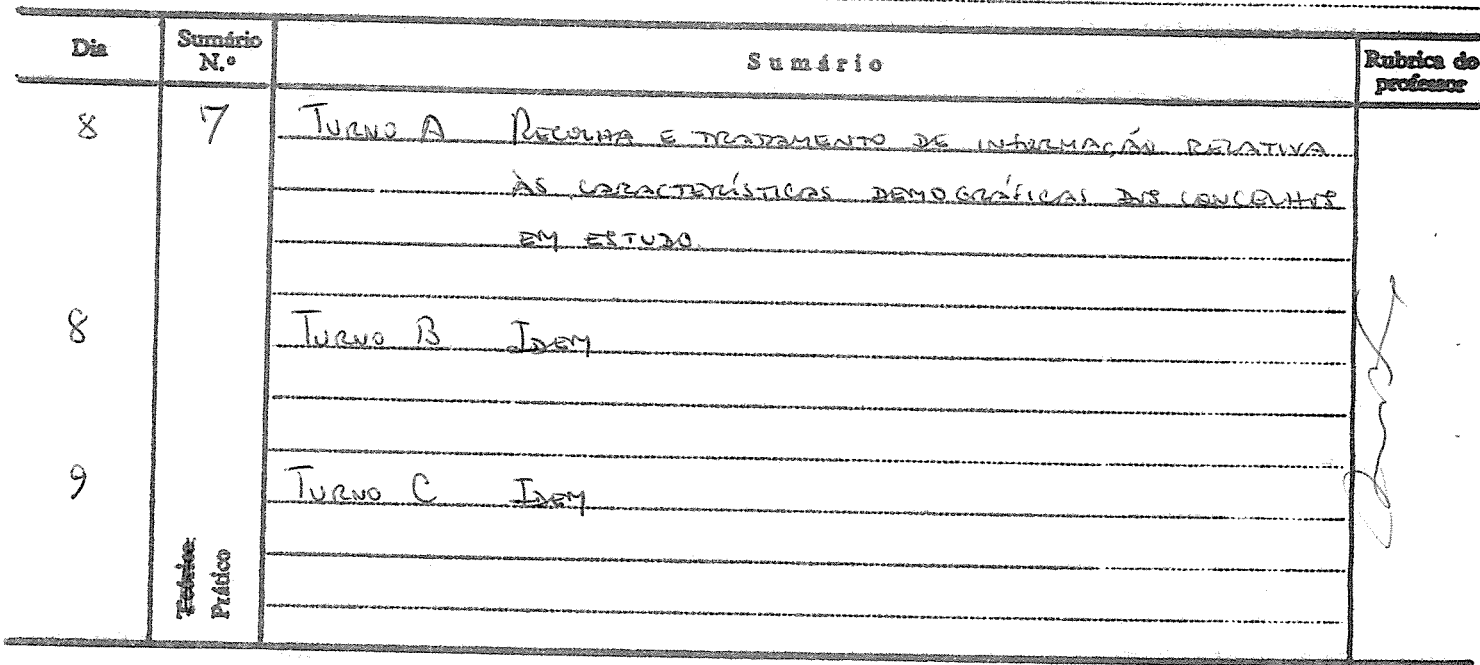 Dia Sumário N.º Sumário Rubrica do professor
8 7 TURNO A RECOLHA E TRATAMENTO DE INFORMAÇÃO RELATIVA
ÀS CARACTERÍSTICAS DEMOGRÁFICAS DOS CONCELHOS
EM ESTUDO.
8 TURNO B IDEM
9 TURNO C IDEM
Teórico
Prático